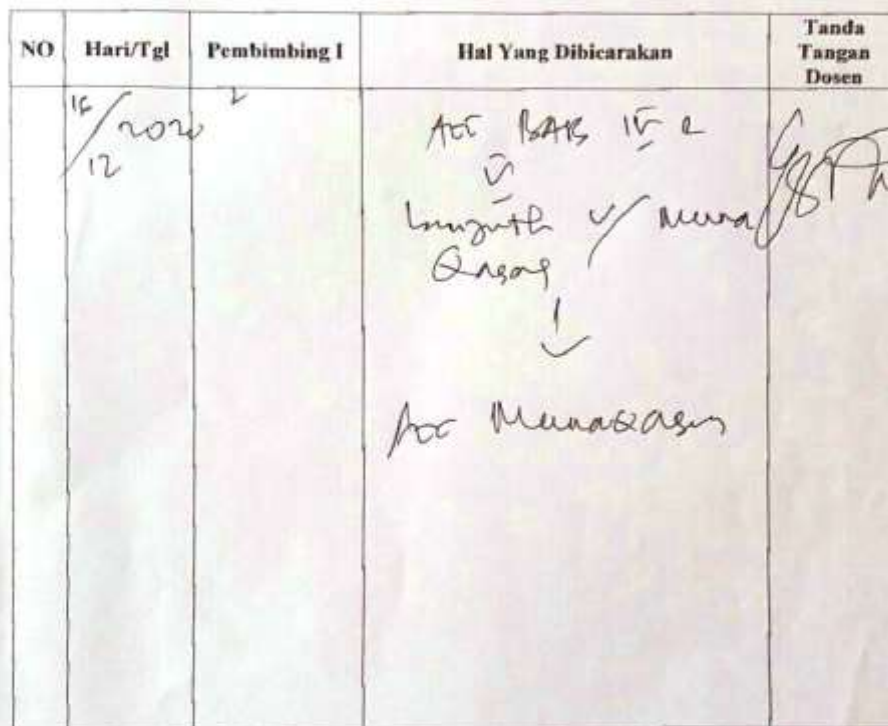 NO Hari/Tgl Pembimbing I Hal Yang Dibicarakan Tanda Tangan Dosen
16/12 2020
Acc BAB IV &
V
Lanjutkan u/ Muna
Qasag
Acc Munaqasy